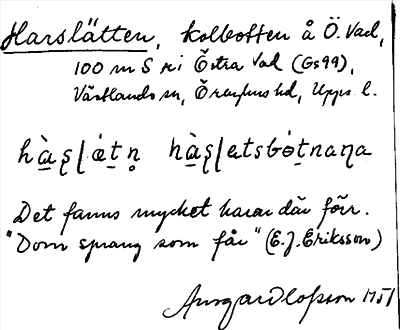 Harslätten, kolbotten å Ö. Vad,
100 m S ki Östra Vad (Gs 99),
Västlands sn, Örbyhus hd, Upps. l.
hàʂḷǽtn̥ hàʂḷætsbòtnaɳa
Det fanns mycket harar där förr.
"Dom sprang som får" (E. J. Eriksson)
Ansgar Olofsson 1951